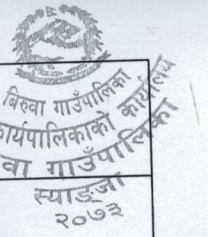 बिरुवा गाउँपालिका
कार्यपालिकाको कार्यालय
गाउँपालिका
स्याङ्जा
२०७३